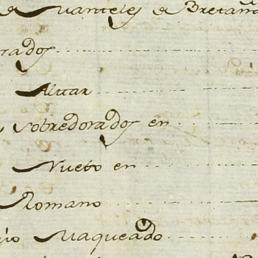 Manteles de Bretaña
rados
Altar
sobredorados en
Nuebo en
Romano
Maqueado